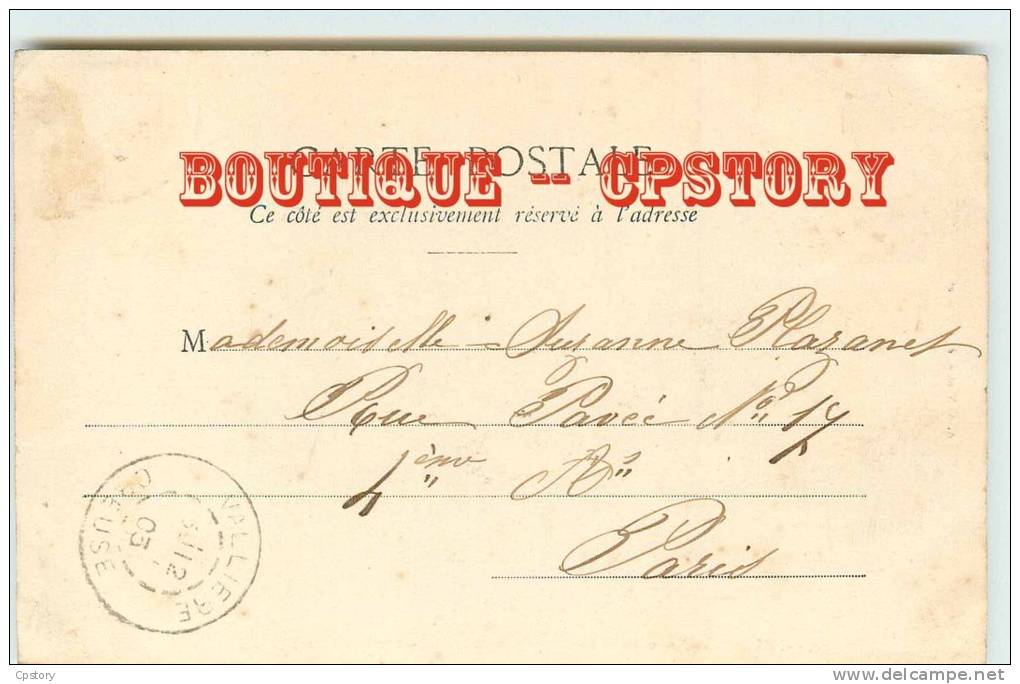 CARTE POSTALE
BOUTIQUE -- CPSTORY
Ce côté est exclusivement réservé à l'adresse
Mademoiselle Suzanne Plazanet
Rue Pavée No 17
4ème Ar
Paris
VALLIERE
12 03
CREUSE
Cpstory
www.delcampe.net